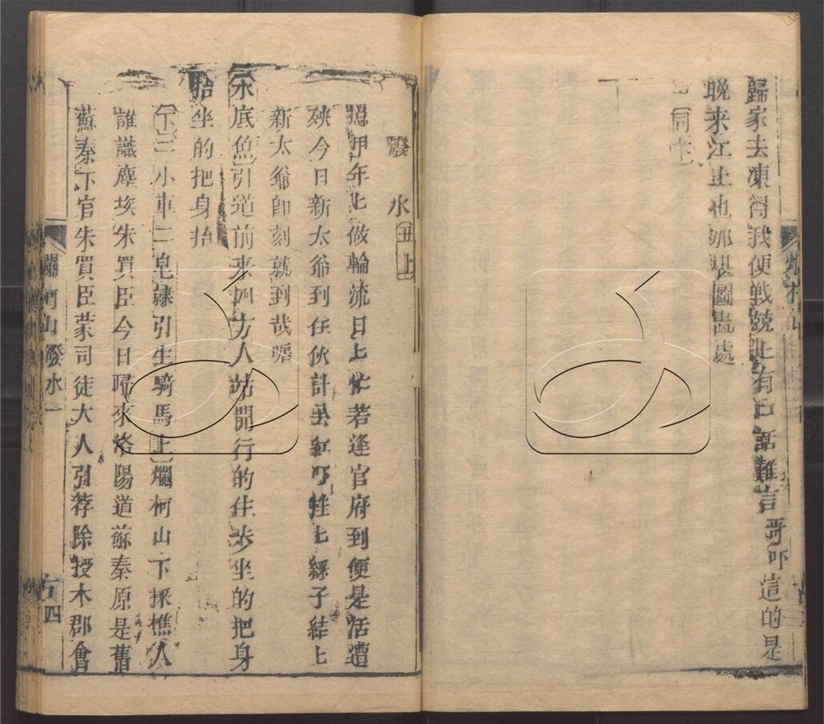 歸家去凍得我便戰兢上有口話難言哥吓這的是
晚来江上也那堪圖畫處
同生
潑水
丑上
甲年上做輪流日上忙若逢官府到便是活遭
殃今日新太爺到任伙計吓紅吓挂上綵子結上
新太爺即刻就到哉嗜
水底魚引道前来四方人站開行的住步坐的把身
抬坐的把身抬
下二小車二皂隸引生騎馬上爛柯山下採樵人
誰識塵埃朱買臣今日歸來洛陽道蘇秦原是舊
蘇秦下官朱買臣蒙司徒大人引荐除授本郡會
爛柯山潑水一
四